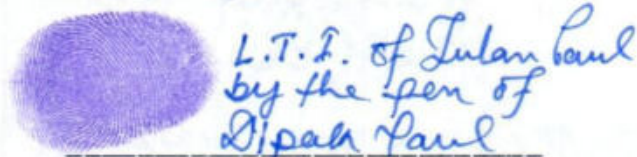 L.T.I. of Tulan Paul
by the pen of
Dipak Paul